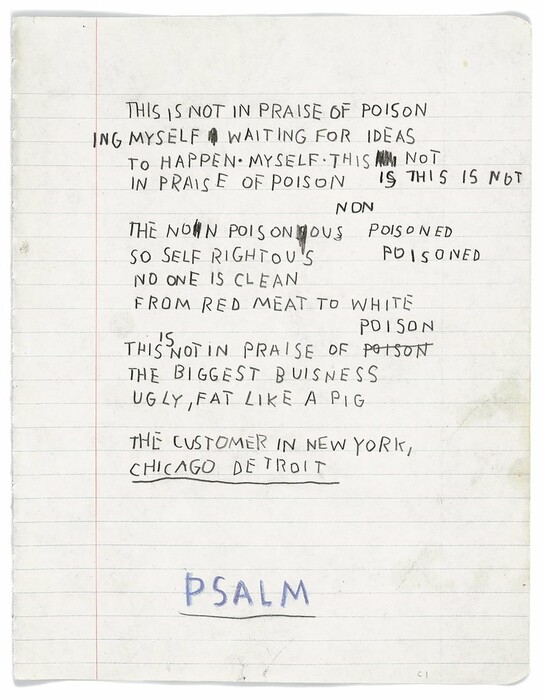 THIS IS NOT IN PRAISE OF POISON
ING MYSELF WAITING FOR IDEAS
TO HAPPEN. MYSELF. THIS NOT
IN PRAISE OF POISON IS THIS IS NOT
NON
THE NON POISONOUS POISONED
SO SELF RIGHTOUS POISONED
NO ONE IS CLEAN
FROM RED MEAT TO WHITE
POISON
THIS IS NOT IN PRAISE OF POISON
THE BIGGEST BUISNESS
UGLY, FAT LIKE A PIG
THE CUSTOMER IN NEW YORK,
CHICAGO DETROIT
PSALM
C1